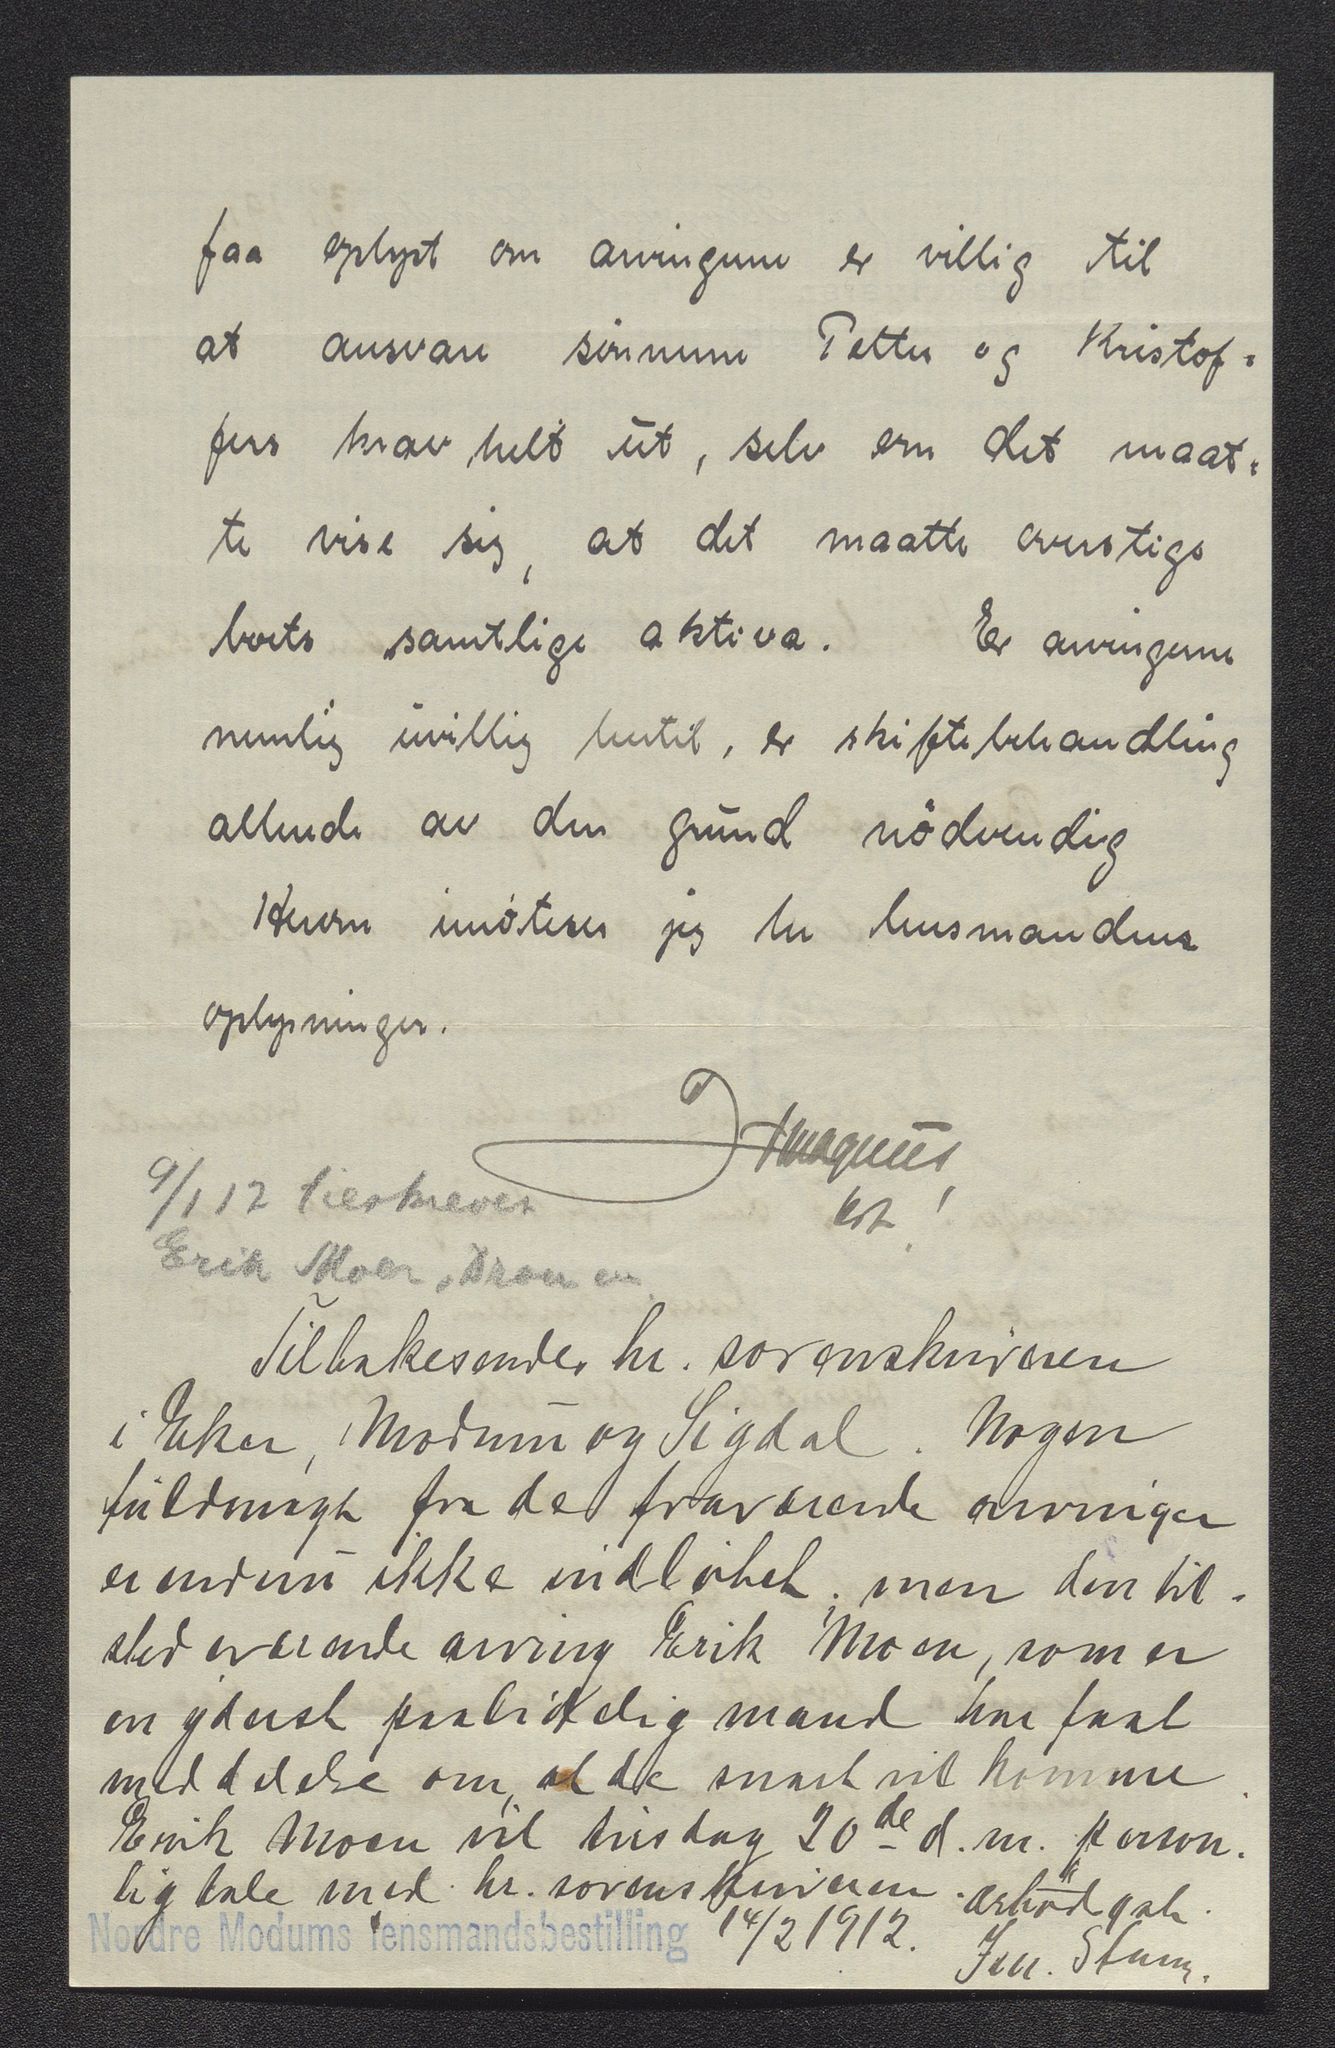 faa oplyst om arvingene er villig til
at ansvare sønnene Petter og Kristof-
fers krav helt ut, selv om det maat-
te vise sig, at det maatte overstige
boets samtlige aktiva. Er arvingene
nemlig uvillig hertil, er skiftebehandling
allerede av den grund nödvendig
Herom imöteser jeg hr lensmandens
oplysninger.
Magnus
kst!
9/1 12 tilskrevet
Erik Moen,
Tilbakesendes hr. sorenskriveren
i Eker, Modum og Sigdal. Nogen
fuldmagt fra de fraværende arvinger
er endnu ikke indløbet, men den til-
stedeværende arving Erik Moen, som er
en yderst paalidelig mand har faat
meddelelse om, at de snart vil komme
Erik Moen vil tirsdag 20de d. m. person-
lig tale med hr. sorenskriveren. ærbødigst.
Nordre Modums lensmandsbestilling 14/2 1912.
Sturm.